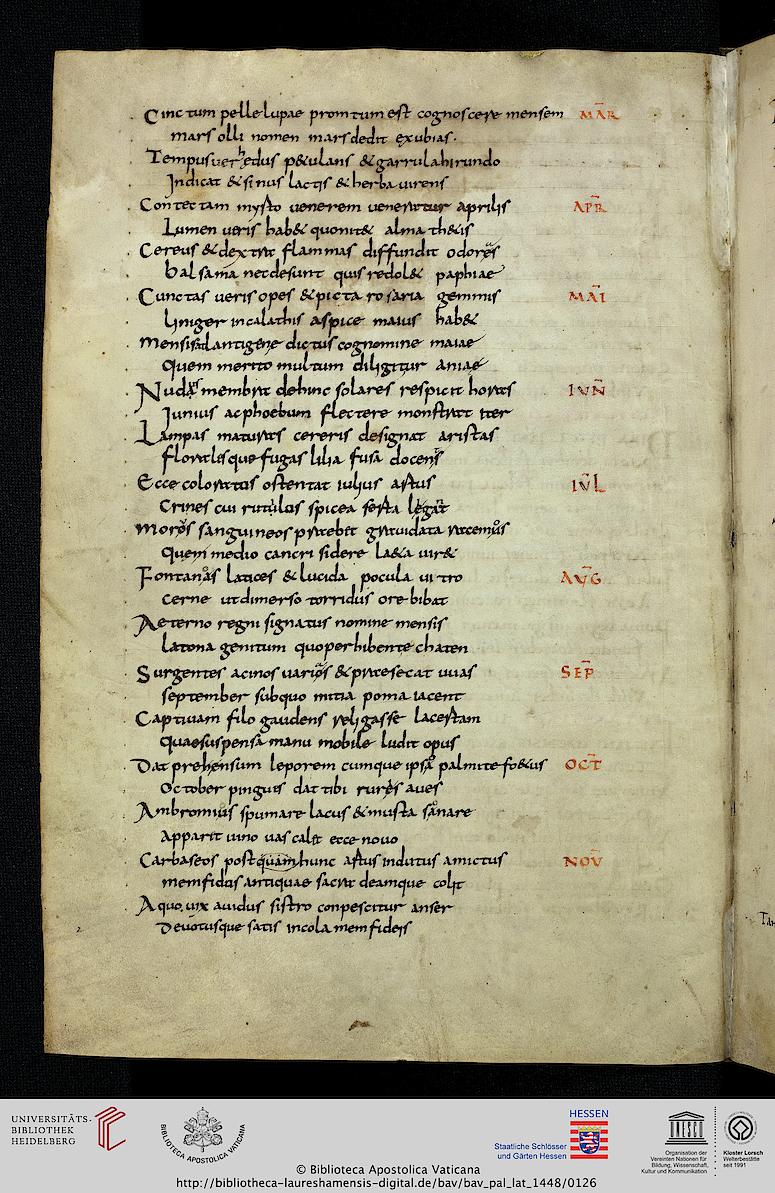 Cinctum pellelupae promtum est cognoscere mensem MAR̄
mars olli nomen mars dedit exubias.
Tempus ver hedus p&ulans & garrula hirundo
Indicat & sinus lactis & herba virens
Contectam mysto venerem veneratur aprilis APR̄
Lumen veris hab& quonit& alma th&is
Cereus & dextra flammas diffundit odores
balsama necdesunt quis redol& paphiae
Cunctas veris opes & picta rosaria gemmis MAI
Liniger in calathis aspice maius hab&
mensis atlantigene dictus cognomine maiae
Quem merito multum diligitur aniae
Nudas membra dehinc solares respicit horas IVN̄
Iunius ac phoebum flectere monstrat iter
Lampas maturas cereris designat aristas
floralesque fugas lilia fusa docens
Ecce coloratos ostentat iulius astus IVL
Crines cui rutulos spicea serta legat
moros sanguineos praebet gravidata racemos
Quem medio cancri sidere la&a vir&
Fontanas latices & lucida pocula vitro AVG
Cerne ut dimerso torridus ore bibat
Aeterno regni signatus nomine mensis
Latona genitum quo perhibente chaten
Surgentes acinos varios & praesecat uvas SEP̄
september subquo mitia poma iacent
Captivam filo gaudens religasse lacertam
Quae suspensa manu mobile ludit opus
Dat prehensum leporem cumque ipsa palmite fo&us OCT̄
October pinguis dat tibi rures aves
Ambromius spumare lacus & musta sanare
Apparet vino vas calet ecce novo
Carbaseos postquam hunc astus indutus amictus NOV̄
memfidos antiquae sacra deamque colit
A quo vix avidus sistro conpescitur anser
Devotusque satis incola memfideis
UNIVERSITÄTS-
BIBLIOTHEK
HEIDELBERG
BIBLIOTHECA APOSTOLICA VATICANA
© Biblioteca Apostolica Vaticana
http://bibliotheca-laureshamensis-digital.de/bav/bav_pal_lat_1448/0126
HESSEN
Staatliche Schlösser
und Gärten Hessen
UNESCO
Organisation der
Vereinten Nationen für
Bildung, Wissenschaft,
Kultur und Kommunikation
Kloster Lorsch
Welterbestätte
seit 1991